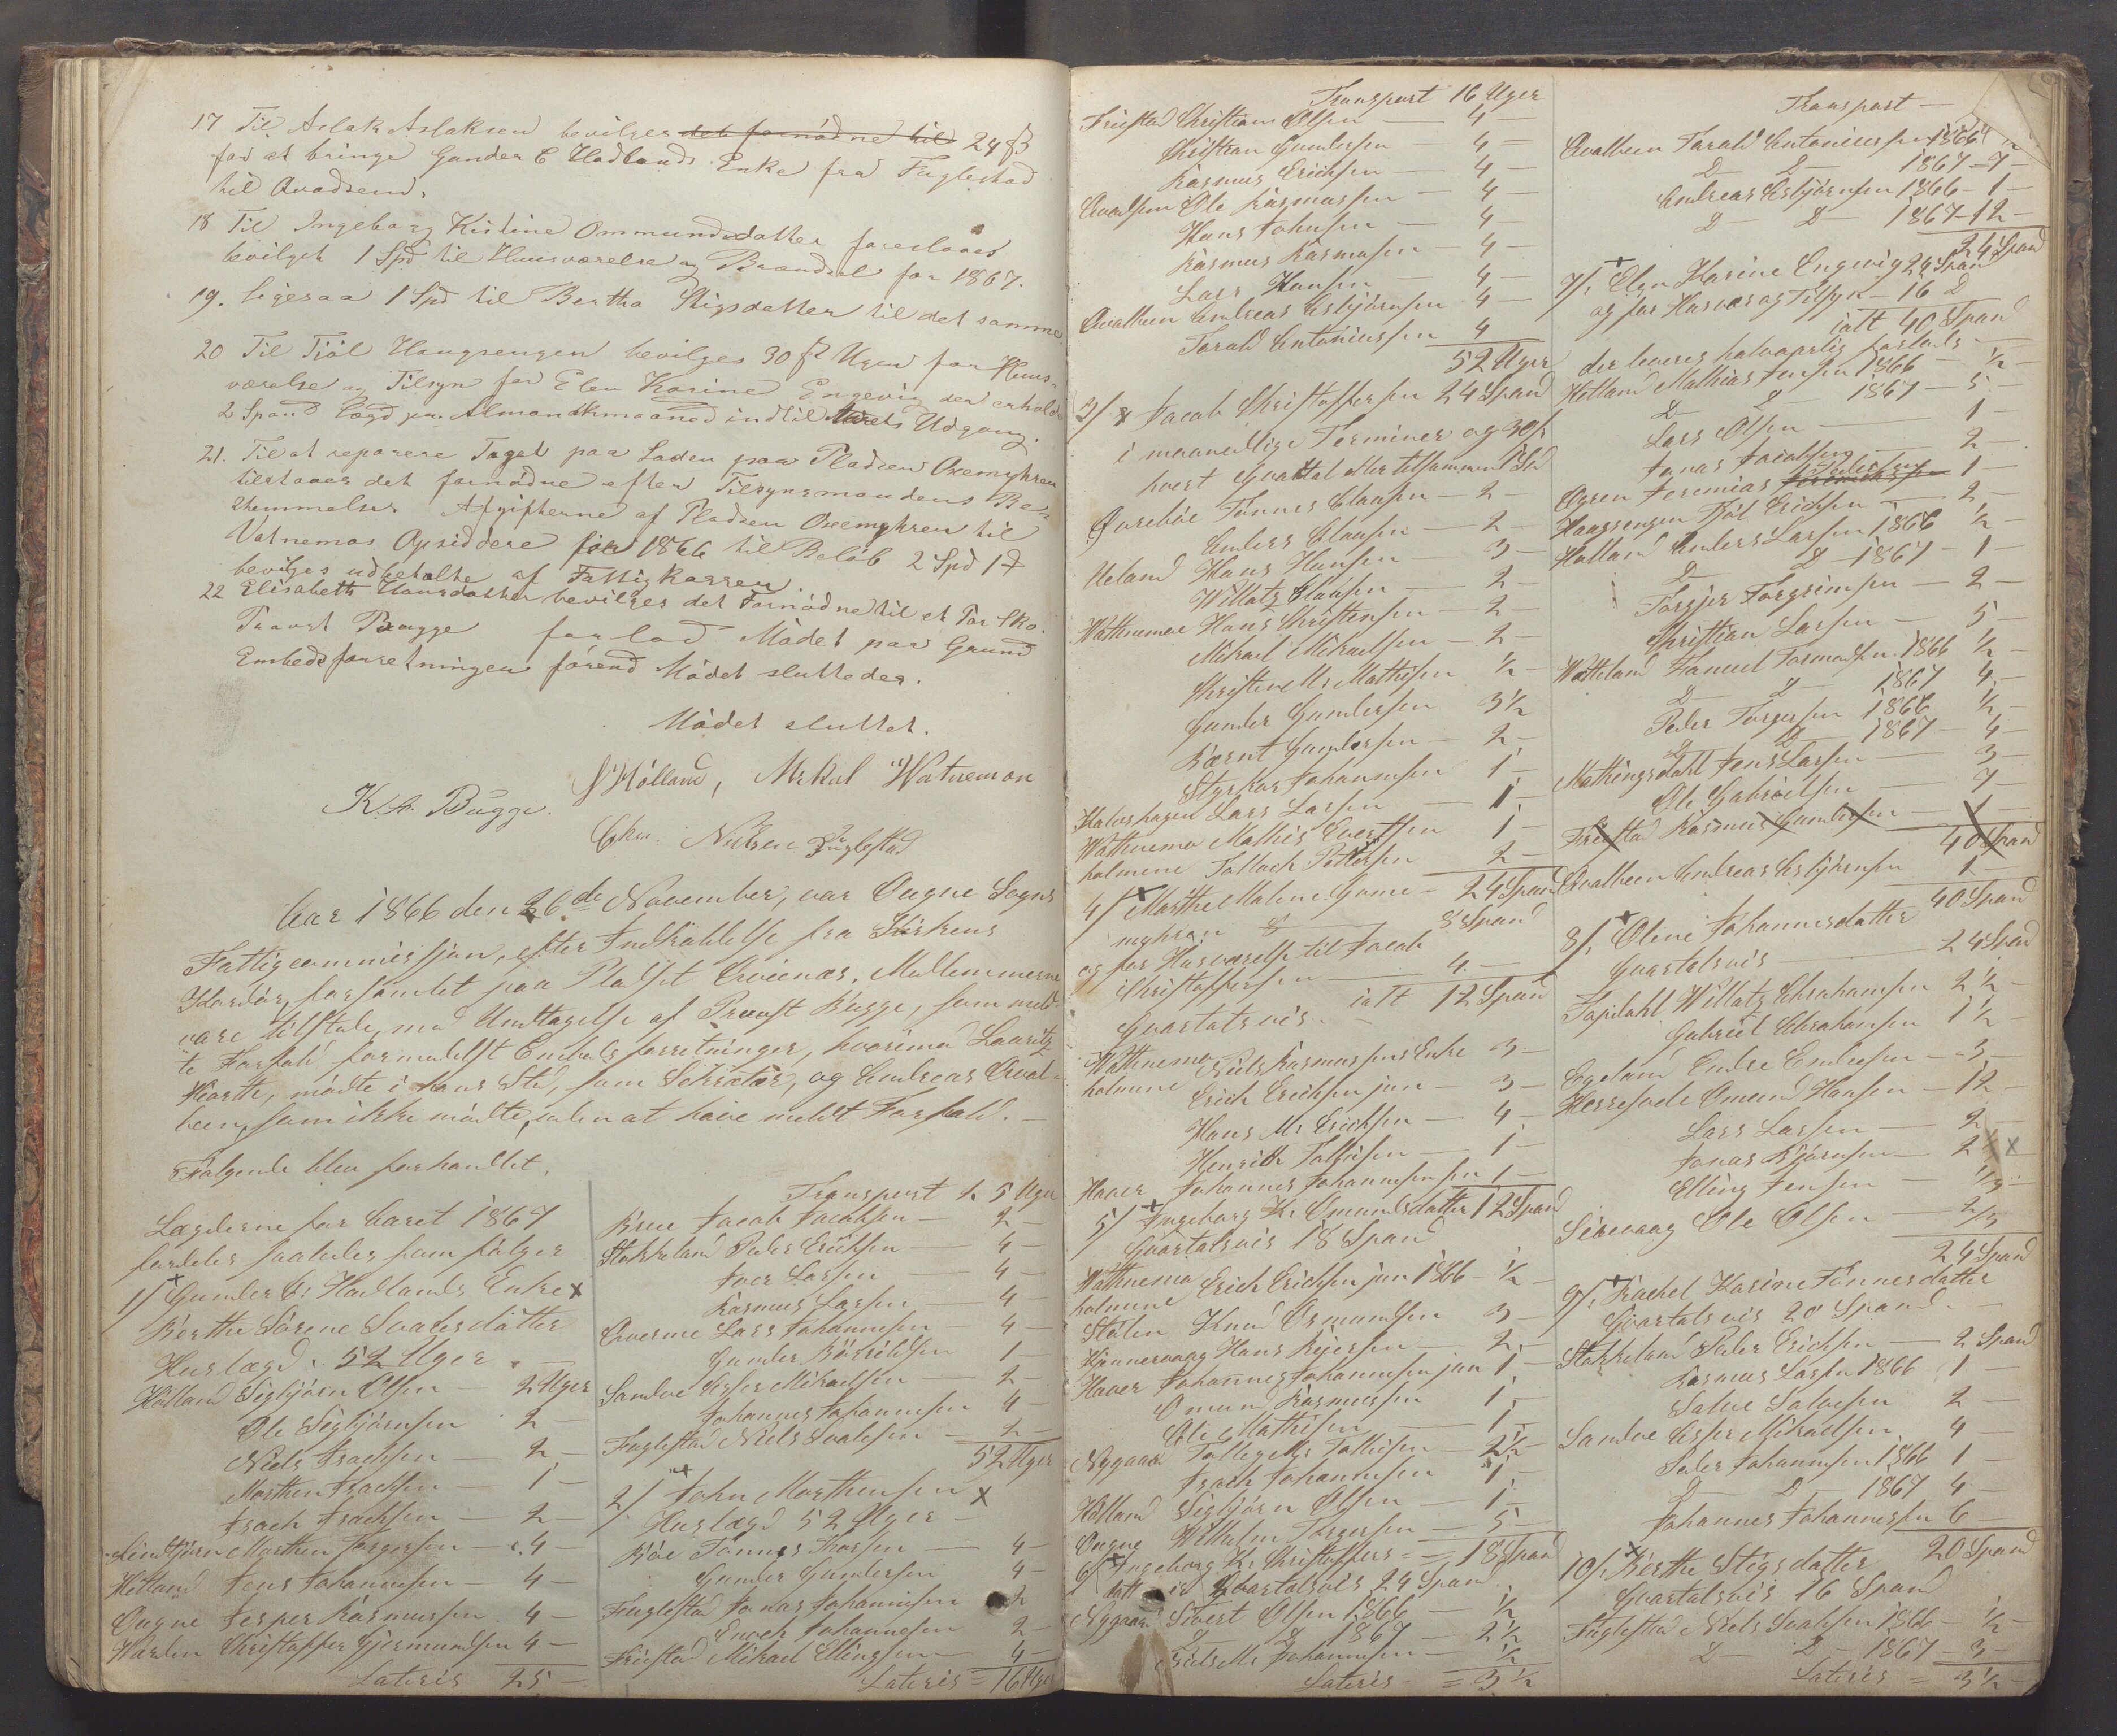 17 Til Aslak Aslaksen bevilges det fornödne til 24 ß
for at bringe Gunder C Hadlands Enke fra Fuglestad
til Qvadsend.
18 Til Ingeborg Kistine Ommundsdatter foreslaaes
bevilget 1 Spd til Huusværelse og Brændsel for 1867.
19. ligesaa 1 Spd til Bertha Stigsdatter til det samme
20 Til Tjöl Haugsengen bevilges 30 ß Ugen for Huus-
værelse og Tilsyn for Elen Karine Engevig der erholder
2 Spand Lægd pr. Almanakmaaned indtil Aarets Udgang.
21. Til at reparere Taget paa Laden paa Pladsen Oxemyhren
tilstaaes det fornödne efter Tilsynsmandens Be-
stemmelse. Afgifterne af Pladsen Oxemyhren til
Vatnemos Opsiddere for 1866 til Belöb 2 Spd 1
bevilges udbetalte af Fattigkassen
22 Elisabeth Hansdatter bevilges det Fornödne til et Par Sko.
Provst Bugge forlod Mödet paa Grund
Embedsforretninger förend Mödet sluttedes.
Mödet sluttet.
Hölland, Mikal Watnemon
K. Bugge.
Nielsen Fuglestad
Aar 1866 den 26de November, var Ougne Sogns
Fattigcommissjon, efter Indkaldelse fra Kirkens
forsamlet paa Pladset Medlemmerne
vare tilstede, med Undtagelse af Provst Bugge, som meld-
te Forfald formedelst Embedsforretninger, hvorimod Lauritz
Hiorth, mödte i hans Sted, som Sekretær, og Andreas Qval-
been, som ikke mödte, uden at have meldt Forfald. —
Fölgende blev forhandlet.
Lægderne for Aaret 1867
fordeles saaledes som fölger
1/ Gunder C. Hadlands Enke x
Berthe Sörine Svalesdatter
Huslægd. 52 Uger
Hölland Sigbjörn Olsen — 2 Uger
Ole Sigbjörnsen 2 —
Niels Isachsen — 2 —
Morthen Isachsen — 1 —
Isach Isachsen — 2 —
Lindtjörn Morthen Torgersen — 4 —
Hetland Jens Johannesen — 4 —
Ougne Jesper Rasmussen 4 —
Warden Christopher Gjermundsen 4 —
Lateris 25 —
Transport 25 Uger
Brue Jacob Jacobsen — 2 —
Stokkeland Peder Erichsen — 4 —
Iver Larsen — 4 —
Rasmus Larsen 4 —
Qverme Lars Johannesen — 4 —
Gunder 1 —
Samdve Asser Mikaelsen — 2 —
Johannes Johannesen 4 —
Fuglestad Niels Svalesen — 2 —
52 Uger
2/ John Morthensen x
Huslægd 52 Uger —
Böe Tönnes Thorsen — 4 —
Gunder Gundersen 4 —
Fuglestad Jonas Johannesen 2
Enoch Johannesen 2 —
Friestad Mikael Ellingsen — 4 —
Lateris = 16 Uger
Transport 16 Uger
Friestad Christian Olsen — 4 —
Christian Gundersen 4 —
Rasmus Erichsen — 4 —
Qvadsem Ole Rasmussen — 4 —
Hans Johnsen — 4 —
Rasmus Rasmusen — 4 —
Lars Hansen — 4 —
Qvalbeen Andreas Asbjörnsen 4 —
Torald Antoniussen 4
52 Uger
3/ x Jacob Christoffersen 24 Spand
i maanedlige Terminer og 30 ß
hvert Qvartal eller tilsammen 1 Spd
Ourebøe Tönnes Clausen — 2 —
Anders Clausen — 2 —
Ueland Hans Hansen 3 —
Willatz Clausen — 2 —
Wathnemoe Hans Christensen — 2 —
Mikael Mikaelsen — 2 —
Christen M. Mathisen ½ —
Gunder Gundersen 3½
Bærnt Gundersen — 2 —
Styrkor Johannesen 1 —
Kalveshagen Lars Larsen — 1 —
Wathnemo Mathis Evertsen 1 —
holmene Tollach Pettersen 2 —
24 Spand
4/ x Marthe Malene Game-
myhren 8 Spand
og for Husværelse til Jacob
Christoffersen 4 —
ialt 12 Spand
Qvartalsvis.
Wathnemo Niels Rasmussens Enke 3 —
holmene Erich Erichsen jun — 3 —
Hans M. Erichsen — 4 —
Henrich Tollisen — 1 —
Haaer Johannes Johannessen sen 1 —
12 Spand
5/ Ingeborg K. Omundsdatter
Qvartalsvis 18 Spand
Wathnemo Erich Erichsen jun 1866 — ½ —
holmene
Stölen Knud Osmundsen 3 —
Kjönnevaag Hans Reiersen — 2 —
Haaer Johannes Johannesen jun 1 —
Omund Rasmussen 1 —
Ole Mathisen — 1 —
Nygaard Tollag M. Tollisen — 2½ —
Isach Johannesen 1 —
Hölland Sigbjörn Olsen — 1 —
Ougne Wilhelm Torgersen — 5 —
= 18 Spand
6/ x Ingeborg K. Christoffers-
datter Qvartalsvis 24 Spand
Nygaard Sivert Olsen 1866 — ½ —
D — D 1867 — 2½
Niels M. Johannesen — ½ —
Lateris — = 3½
Transport —
Qvalbeen Torald Antoniussen 1866
D D 1867 — 7 —
Andreas Asbjörnsen 1866 — 1 —
D — D — 1867 — 12 —
24 Spand
7/. Elen Karine Engevig 24 Spand
og for Husvær og Tilsyn — 16 D
ialt 40 Spand
der leveres halvaarlig forskuds
Hetland Mathias Jensen 1866 — ½ —
D D 1867 — 5 —
Lars Olsen — 1 —
Jonas Jacobsen — 2 —
Ogren Jeremias 1 —
Haugsengen Tjöl Erichsen — 2 —
Hølland Anders Larsen 1866 ½ —
D D — 1867 — 1 —
Torgjer Torgrimsen — 2 —
Christian Larsen — 5 —
Watteland Samuel Tormodsen 1866 ½ —
D — D 1867 4 —
Peder Torgersen 1866 ½ —
D D 1867 — 4 —
Mathingsdahl Jens Larsen — 3 —
Ole Gabrielsen — 7 —
Friestad Rasmus Gundersen — 1 —
40 Spand
Qvalbeen Andreas Asbjörnsen 1 —
40 Spand
8/. Oline Johannesdatter
Qvartalsvis — 24 Spand
Tapdahl Willatz Abrahamsen 2½ —
Gabriel Abrahamsen 1½ —
Egeland Endre Endresen — 3 —
Herresvele Omund Hansen — 12 —
Lars Larsen — 2 —
Jonas Björnsen — 2 x x
Elling Jensen — ⅓ —
Sirevaag Ole Olsen — 2/3
24 Spand
9/. Rachel Karine Tönnesdatter
Qvartalsvis 20 Spand. —
Stokkeland Peder Erichsen — 2 Spand
Rasmus Larsen 1866 1 —
Salve Salvesen 2 —
Samdve Asser Mikaelsen 4 —
Peder Johannesen 1866 1 —
D — D — 1867 4 —
Johannes Johannessen 6 —
20 Spand
10/. Berthe Stigsdatter
Qvartalsvis 16 Spand
Fuglestad Niels Svalesen 1866 ½ —
D — D — 1867 3 —
Lateris = 3½ —